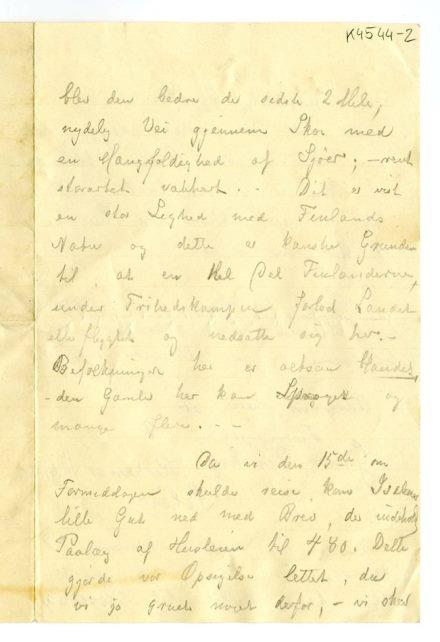 K4544-2
blev den bedre de sidste 2 Mile,
nydelig Vei gjennem Skov med
en Mangfoldighed af Sjöer; – rent
storartet vakkert. . Det er vist
en stor Lighed med Finlands
Natur og dette er kanske Grunden
til, at en Hel Del Finlænderne,
under Frihedskampen, forlod Landet
eller flygtet og nedsatte sig her. –
Befolkningen her er altsaa
– den Gamle her kan Sproget og
mange flere. . –
Da vi den 15de om
Formiddagen skulde reise, kom
lille Gut ned med Brev, der indeholdt
Paalæg af Husleien til 480. Dette
gjorde vor Opsigelse lettet, da
vi jo gruet meget derfor, – vi